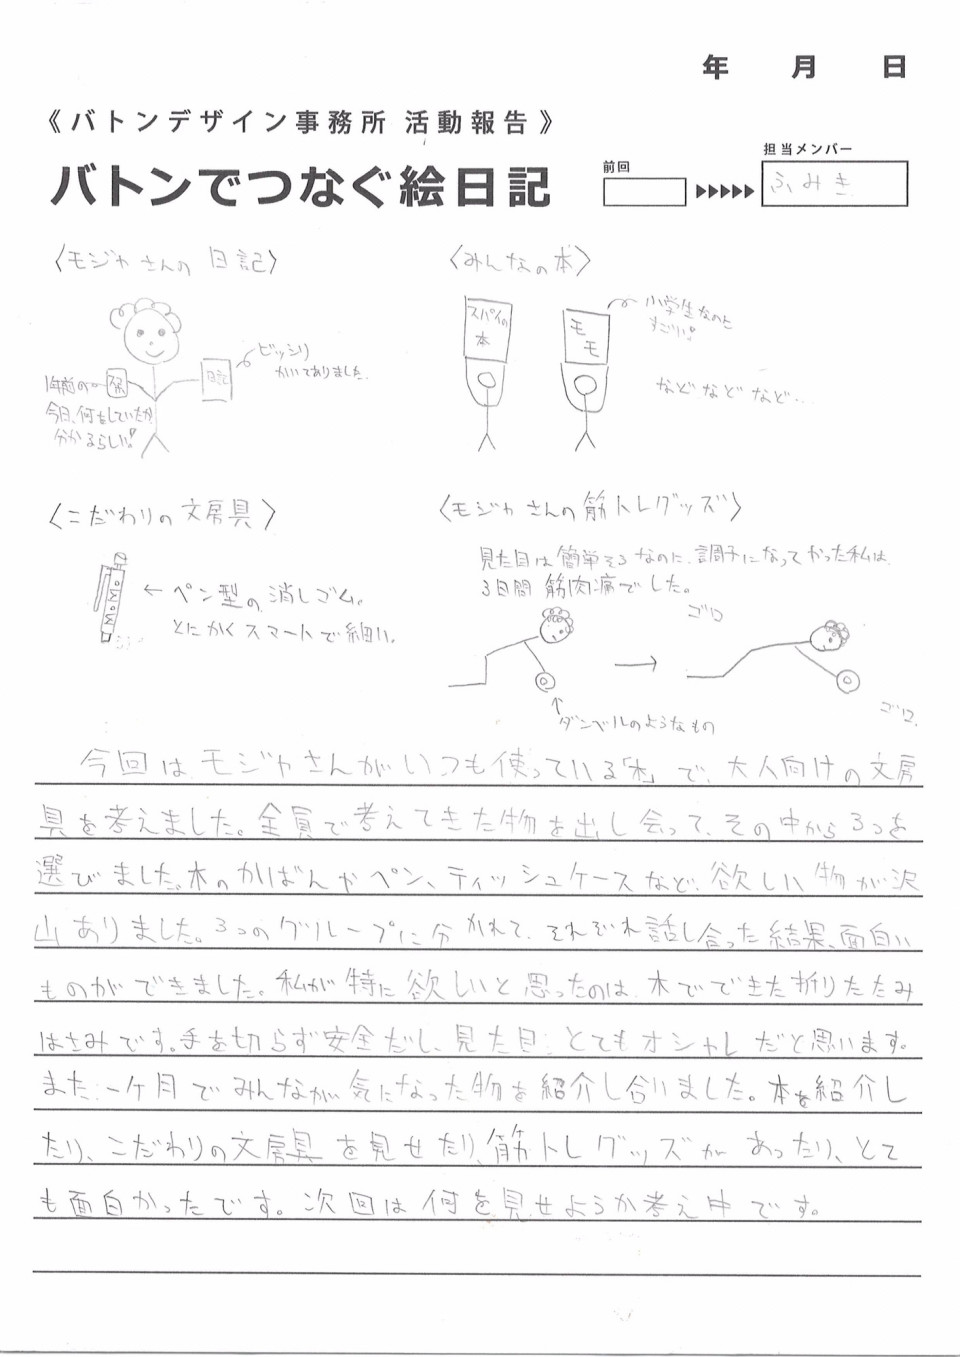 年 月 日
《バトンデザイン事務所 活動報告》
バトンでつなぐ絵日記
前回
担当メンバー
ふみき
〈モジャさんの 日記〉
ビッシリ
かいてありました。
日記
1年前の
今日、何をしていたか
分かるらしい!
〈みんなの本〉
スパイの
本
モモ
小学生なのに
すごい!
などなどなど…
〈こだわりの文房具〉
MONO
← ペン型の消しゴム。
とにかくスマートで細い。
〈モジャさんの筋トレグッズ〉
見た目は簡単そうなのに、調子になってやった私は、
3日間 筋肉痛でした。
ゴロ
ゴロ
ダンベルのようなもの
今回はモジャさんがいつも使っている「木」で、大人向けの文房
具を考えました。全員で考えてきた物を出し合って、その中から3つを
選びました。木のかばんやペン、ティッシュケースなど、欲しい物が沢
山ありました。3つのグループに分かれて、それぞれ話し合った結果、面白い
ものができました。私が特に欲しいと思ったのは、木でできた折りたたみ
はさみです。手を切らず安全だし、見た目、とてもオシャレだと思います。
また、一ケ月でみんなが気になった物を紹介し合いました。本を紹介し
たり、こだわりの文房具を見せたり、筋トレグッズがあったり、とて
も面白かったです。次回は何を見せようか考え中です。